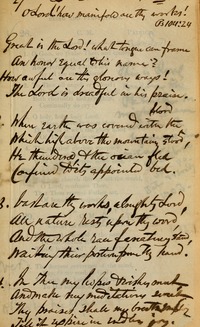 O Lord how manifold are thy works!
Ps 104.24
Great is the Lord! what tongue can frame
An honor equal to his name?
How awful are thy glorious ways!
The Lord is dreadful in his praise.
flood
2. When Earth was cover'd with the
Which high above the mountain stood,
He thundered & the ocean fled
Confined to its appointed bed.
3. thy works, almighty Lord,
All nature rests upon thy word,
And the whole race of creatures
Waiting their portion from thy hand.
4. In thee my hopes & wishes meet
And make my meditations sweet
Thy praises shall my breath employ